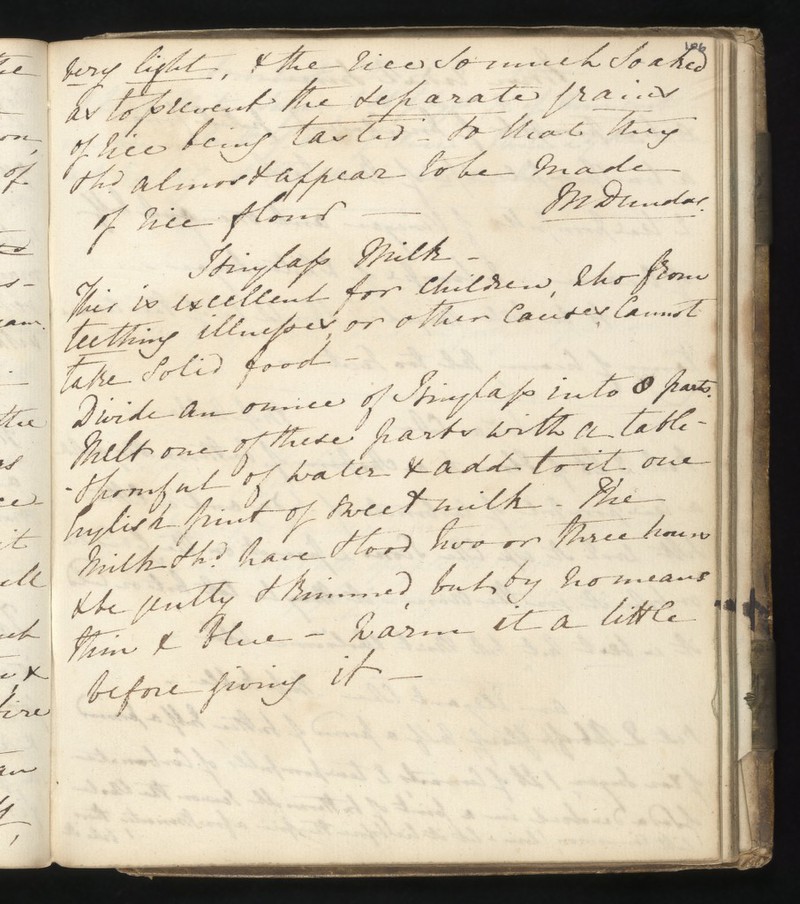 106
very light, & the rice so much soaked
as to prevent the separate grains
of rice being tasted - so that they
shd almost appear to be made
of rice flour —
M Dundas.
Isinglass Milk -
This is excellent for Children, who from
teething illnesses, or other Causes Cannot
take Solid food -
Divide an ounce of Isinglass into 8 parts.
Melt one of these parts with a table-
-spoonful of water & add to it one
English pint of Sweet milk - The
Milk shd have stood two or three hours
& be gently skimmed, but by no means
thin & blue - Warm it a little
before giving it -